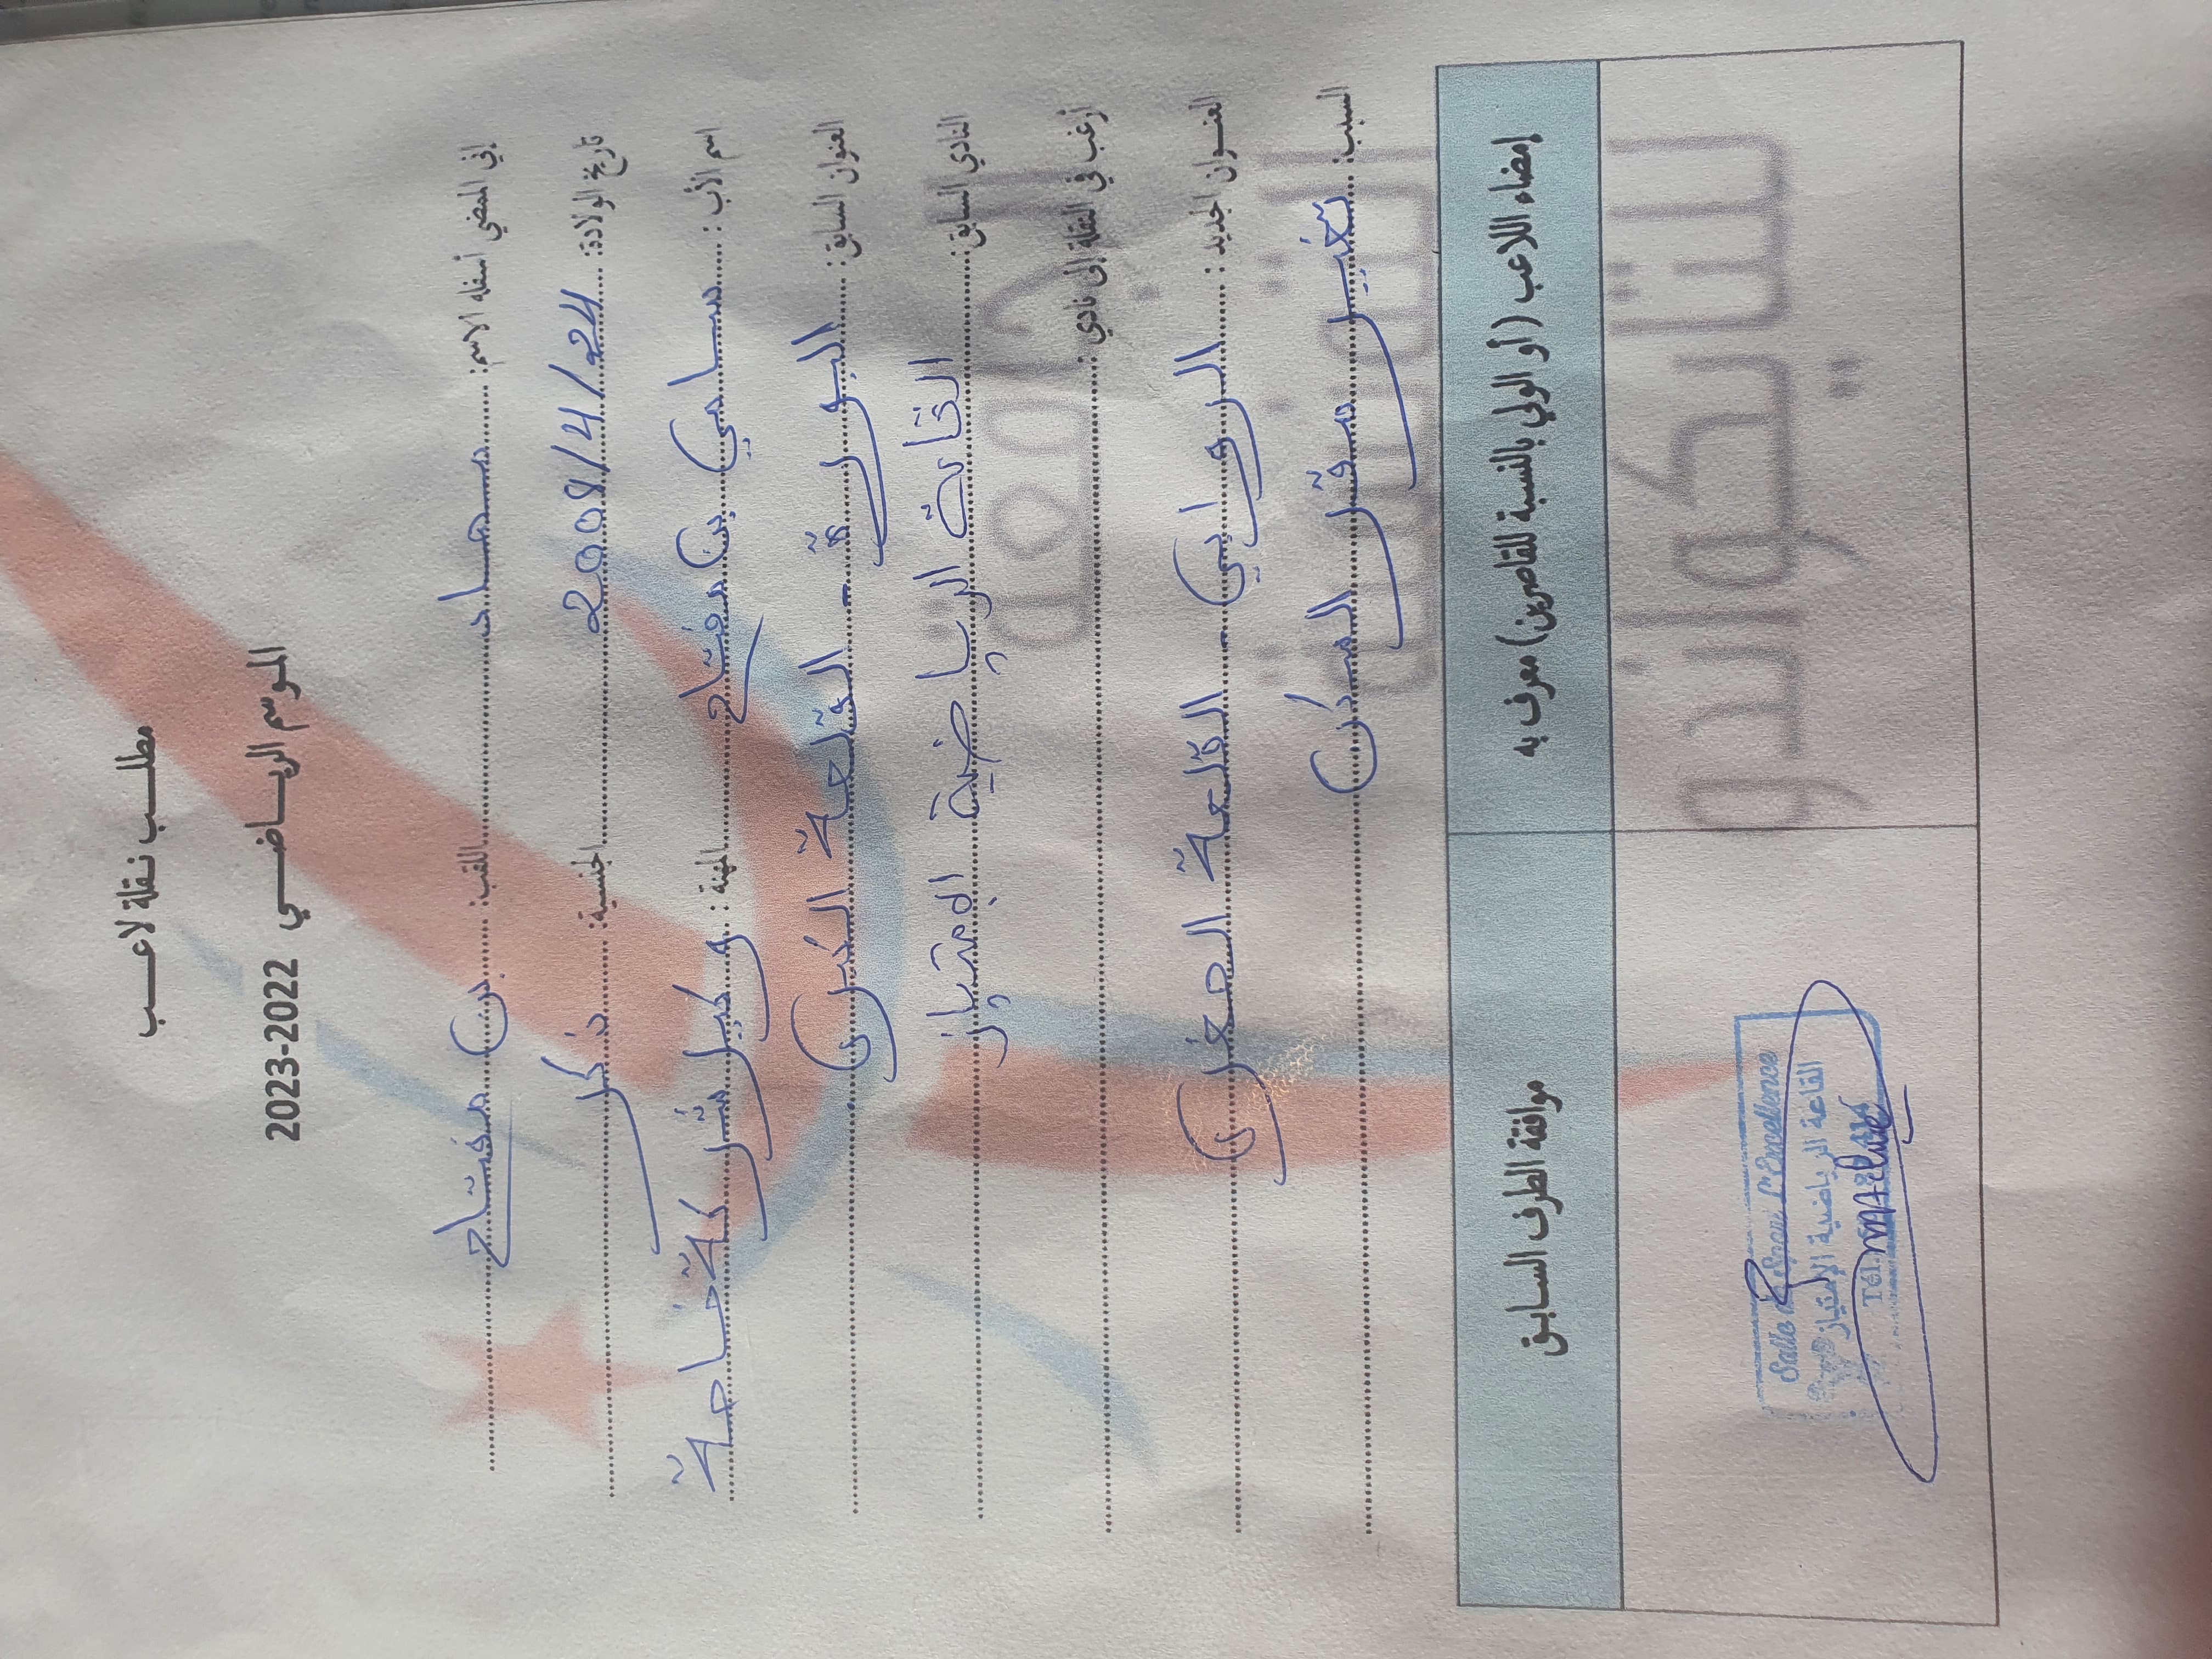 مطلــب نقلة لاعــب
الموسم الريــاضــي 2022-2023
إني الممضي أسفله الاسم: جهاد اللقب: بن مفتاح
تاريخ الولادة: 2008/4/24 الجنسية: ذكر
اسم الأب: سامي بن مفتاح المهنة: وكيل شركة خاصة
العنوان السابق: البورة - القلعة الكبرى
النادي السابق: القاعة الرياضية الامتياز
أرغب في النقلة إلى نادي:
العنــوان الجديد: الروابي - القلعة الصغرى
السبب: تغيير مقر السكن
إمضاء اللاعب (أو الولي بالنسبة للقاصرين) معرف به
موافقة الطرف السابـق
الجامعة
التونسية
للتايكواندو
Salle de Sport L'Excellence
القاعة الرياضية الإمتياز
Tél.